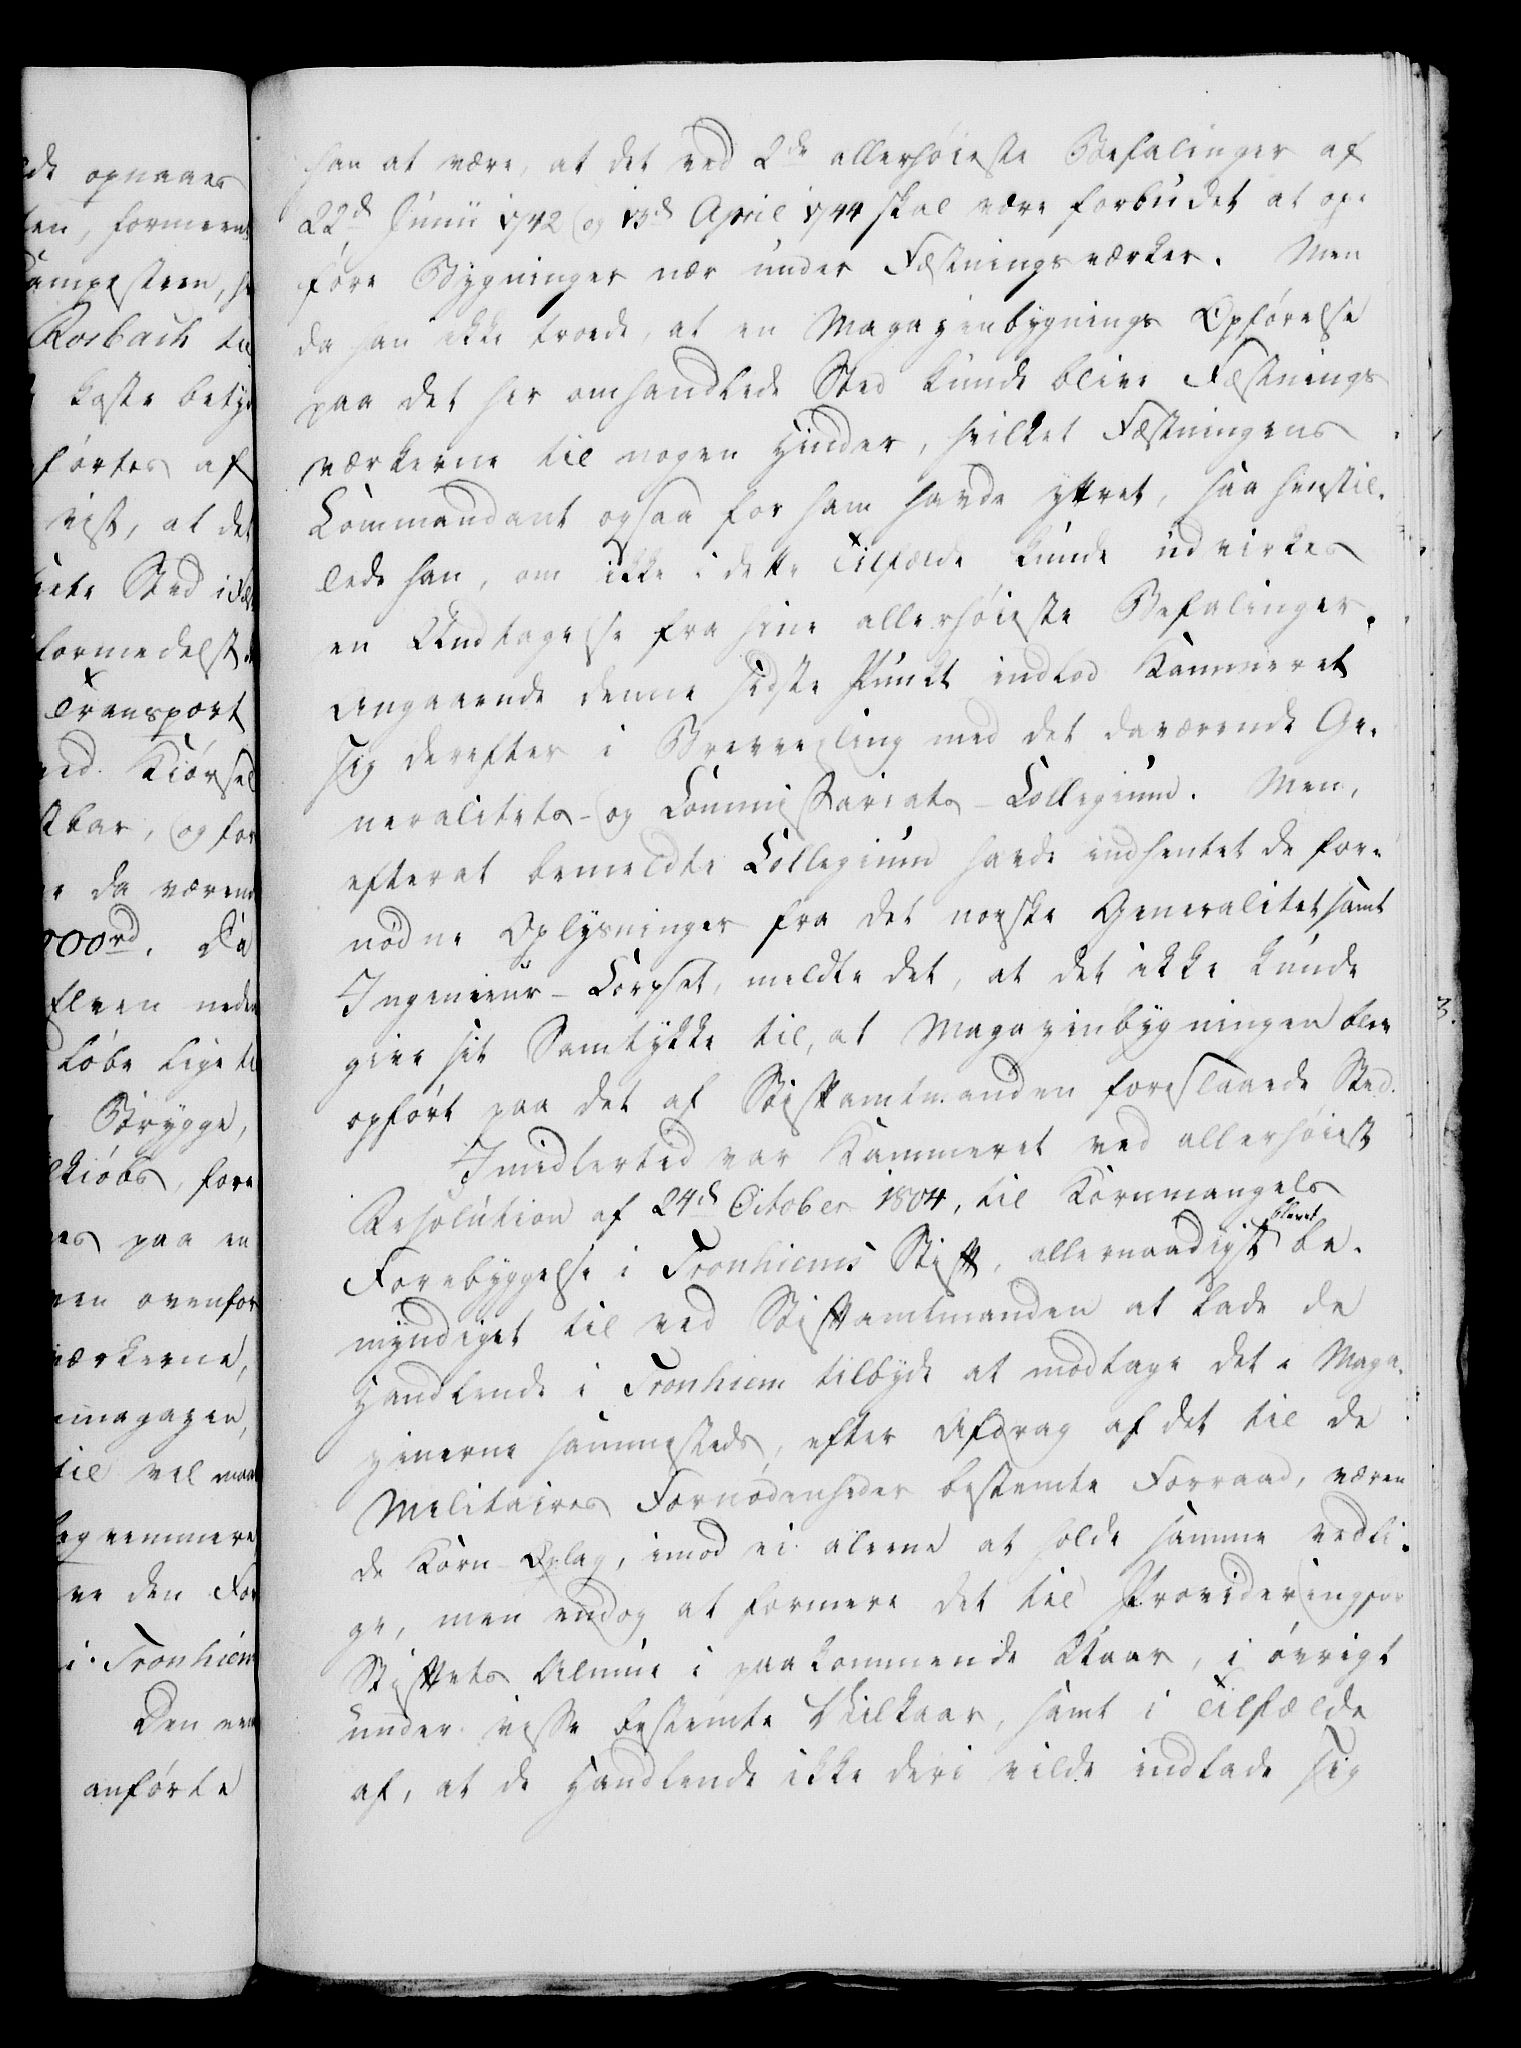 de opnaaes
ten, formeent
Kampesteen, h
Rosbach til
koste betyd
førtes af
vist, at det
Sted i
formedelst
Transport
ved Kiørsel
stbar, og for
da værend
00rd. De
Elven neden
løbe lige ti
Brygge,
lkiøbs, fore
es paa en
en ovenfor
værkerne,
magazin,
til vel maa
beqvemmere
ve den For
i Tronhiem
Den
anførte
han at være, at det ved 2de allerhøieste Befalinger af
22d Junii 1742 og 13d April 1744 skal være forbudet at op-
føre Bygninger nær under Fæstningsværker. Men
da han ikke troede, at en Magazinbygnings Opførelse
paa det her omhandlede Sted kunde blive Fæstnings
værkerne til nogen Hinder, hvilket Fæstningens
Commandant ogsaa for ham havde yttret, saa henstil-
lede han, om ikke i dette Tilfælde kunde udvirkes
en Undtagelse fra hine allerhøieste Befalinger.
Angaaende denne sidste Punkt indlod Kammeret
sig derefter i Brevvexling med det daværende Ge-
neralitets- og Commissariats-Collegium. Men,
efterat bemeldte Collegium havde indhentet de for-
nødne Oplysninger fra det norske Generalitet samt
Ingenieur-Corpset, meldte det, at det ikke kunde
give sit Samtykke til, at Magazinbygningen blev
opført paa det af Stiftamtmanden foreslaaede Sted.
Imidlertid var Kammeret ved allerhøieste
Resolution af 24d October 1804, til Kornmangels
Forebyggelse i Tronhiems Stift, allernaadigst blevet be-
myndiget til ved Stiftamtmanden at lade de
Handlende i Tronhiem tilbyde at modtage det i Maga-
zinerne sammesteds, efter Afdrag af det til de
Militaires Fornødenheder bestemte Forraad, væren
de Korn-Oplag, imod ei alene at holde samme vedli-
ge, men endog at formere det til Provideringfor
Stiftets Almue i paakommende Uaar, i øvrigt
under visse bestemte Vilkaar, samt i Tilfælde
af, at de Handlende ikke deri vilde indlade sig
3.